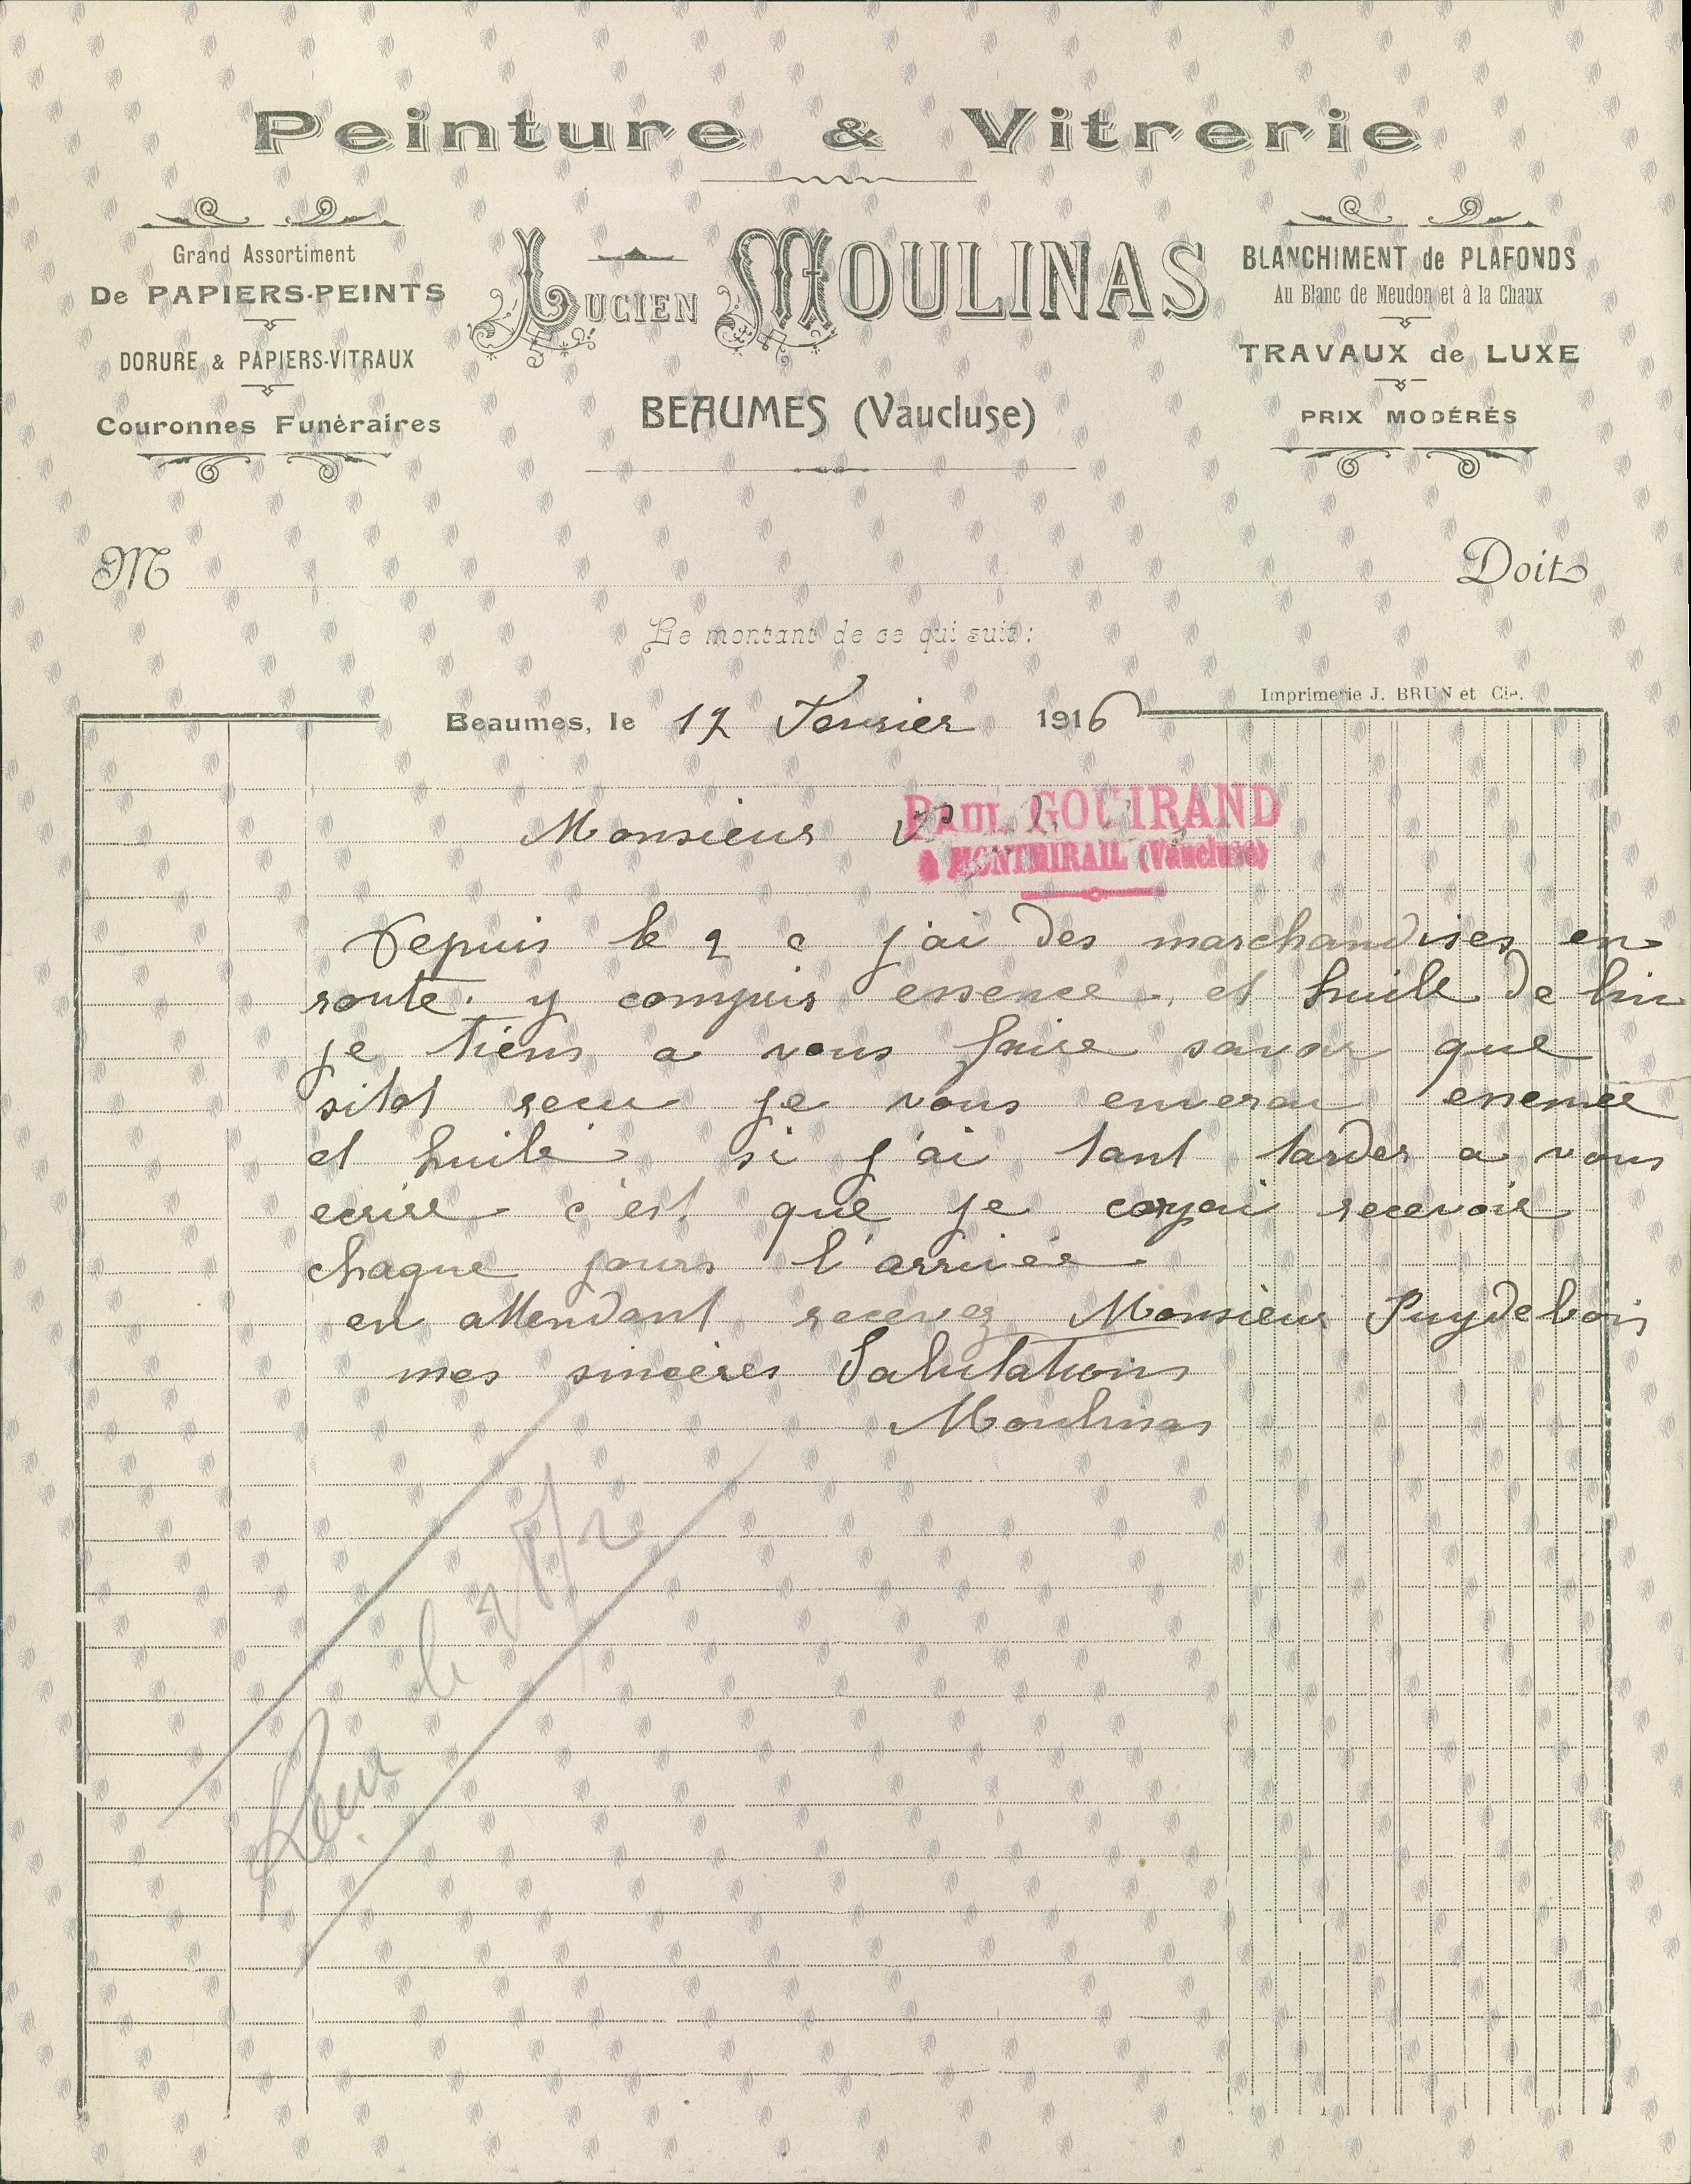 Peinture & Vitrerie
Grand Assortiment
De PAPIERS-PEINTS
DORURE & PAPIERS-VITRAUX
Couronnes Funéraires
LUCIEN MOULINAS
BEAUMES (Vaucluse)
BLANCHIMENT de PLAFONDS
Au Blanc de Meudon et à la Chaux
TRAVAUX de LUXE
PRIX MODÉRÉS
M Doit
Le montant de ce qui suit :
Imprimerie J. BRUN et Cie.
Beaumes, le 17 Fevrier 1916
Monsieur
PAUL GOUIRAND
à MONTMIRAIL (Vaucluse)
Depuis le 2 c j'ai des marchandises en
route. y compris essence, et huile de lin
je tiens a vous faire savoir que
sitot recu je vous enverai essence
et huile si j'ai tant tarder a vous
ecrire c'est que je coryai recevoir
chaque jours l'arrivée
en attendant recevez Monsieur Puydebois
mes sincères Salutations
Moulinas
Reçu le 28/2